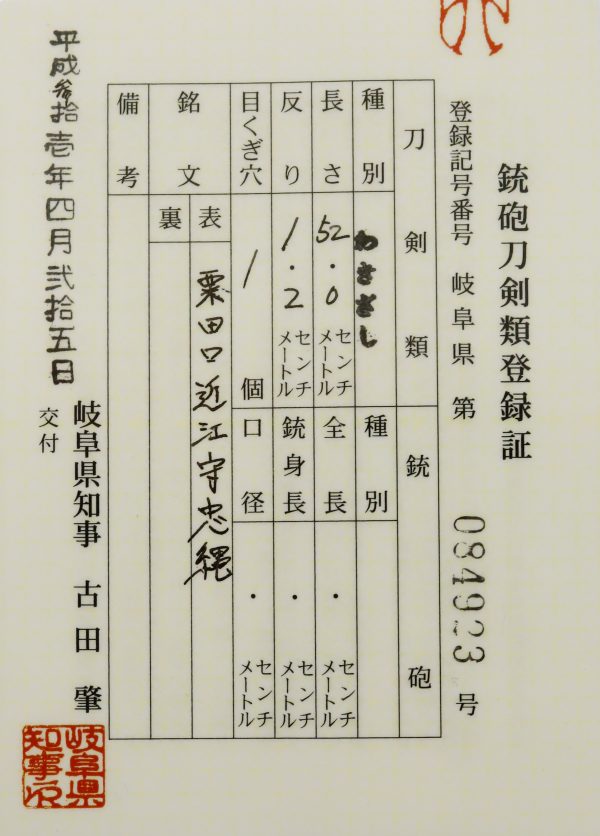 銃砲刀剣類登録証
登録記号番号 岐阜県 第 084923 号
刀剣類
種別 わきざし
長さ 52.0 センチメートル
反り 1.2 センチメートル
目くぎ穴 1 個
銘文
表 粟田口近江守忠縄
裏
備考
銃砲
種別
全長 ・ センチメートル
銃身長 ・ センチメートル
口径 ・ センチメートル
平成参拾壱年四月弐拾五日
交付
岐阜県知事 古田 肇
岐阜県知事之印